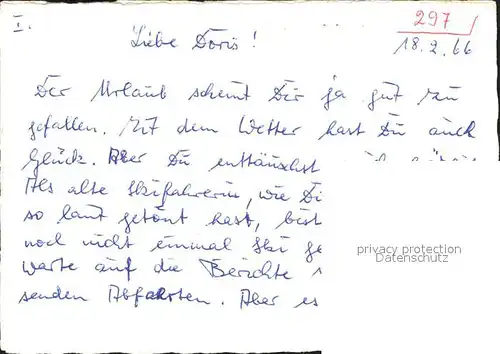 I.
297
Liebe Doris!
18.2.66
Der Urlaub scheint Dir ja gut zu
gefallen. Mit dem Wetter hast Du auch
Glück. Aber Du enttäuschst
Als alte Skifahrerin, wie Di
so laut getönt hast, bist
noch nicht einmal Ski ge
privacy protection
Datenschutz
warte auf die Berichte
senden Abfahrten. Aber es